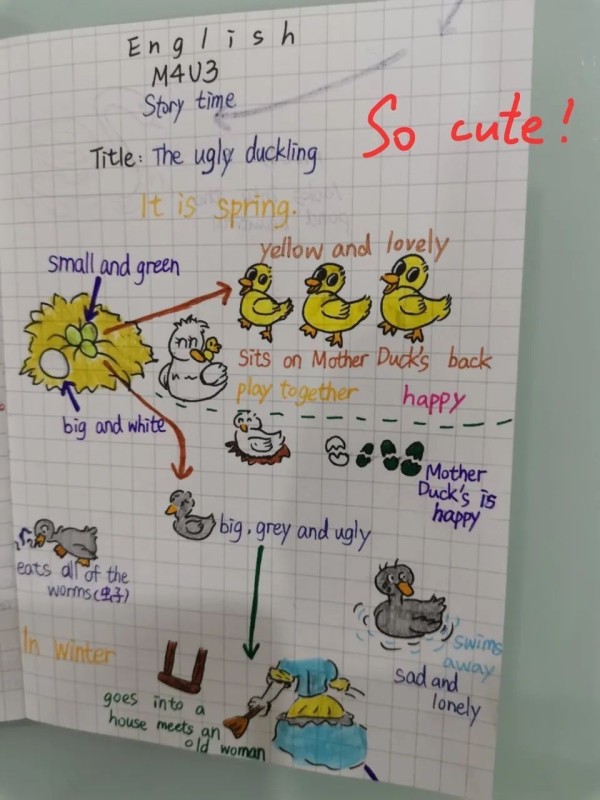 English
M4U3
Story time
So cute!
Title: The ugly duckling
It is spring.
yellow and lovely
small and green
Sits on Mother Duck's back
play together
happy
big and white
Mother
Duck's is
happy
big, grey and ugly
eats all of the
worms(虫子)
swims
away
sad and
lonely
In winter
goes into a
house meets an
old woman